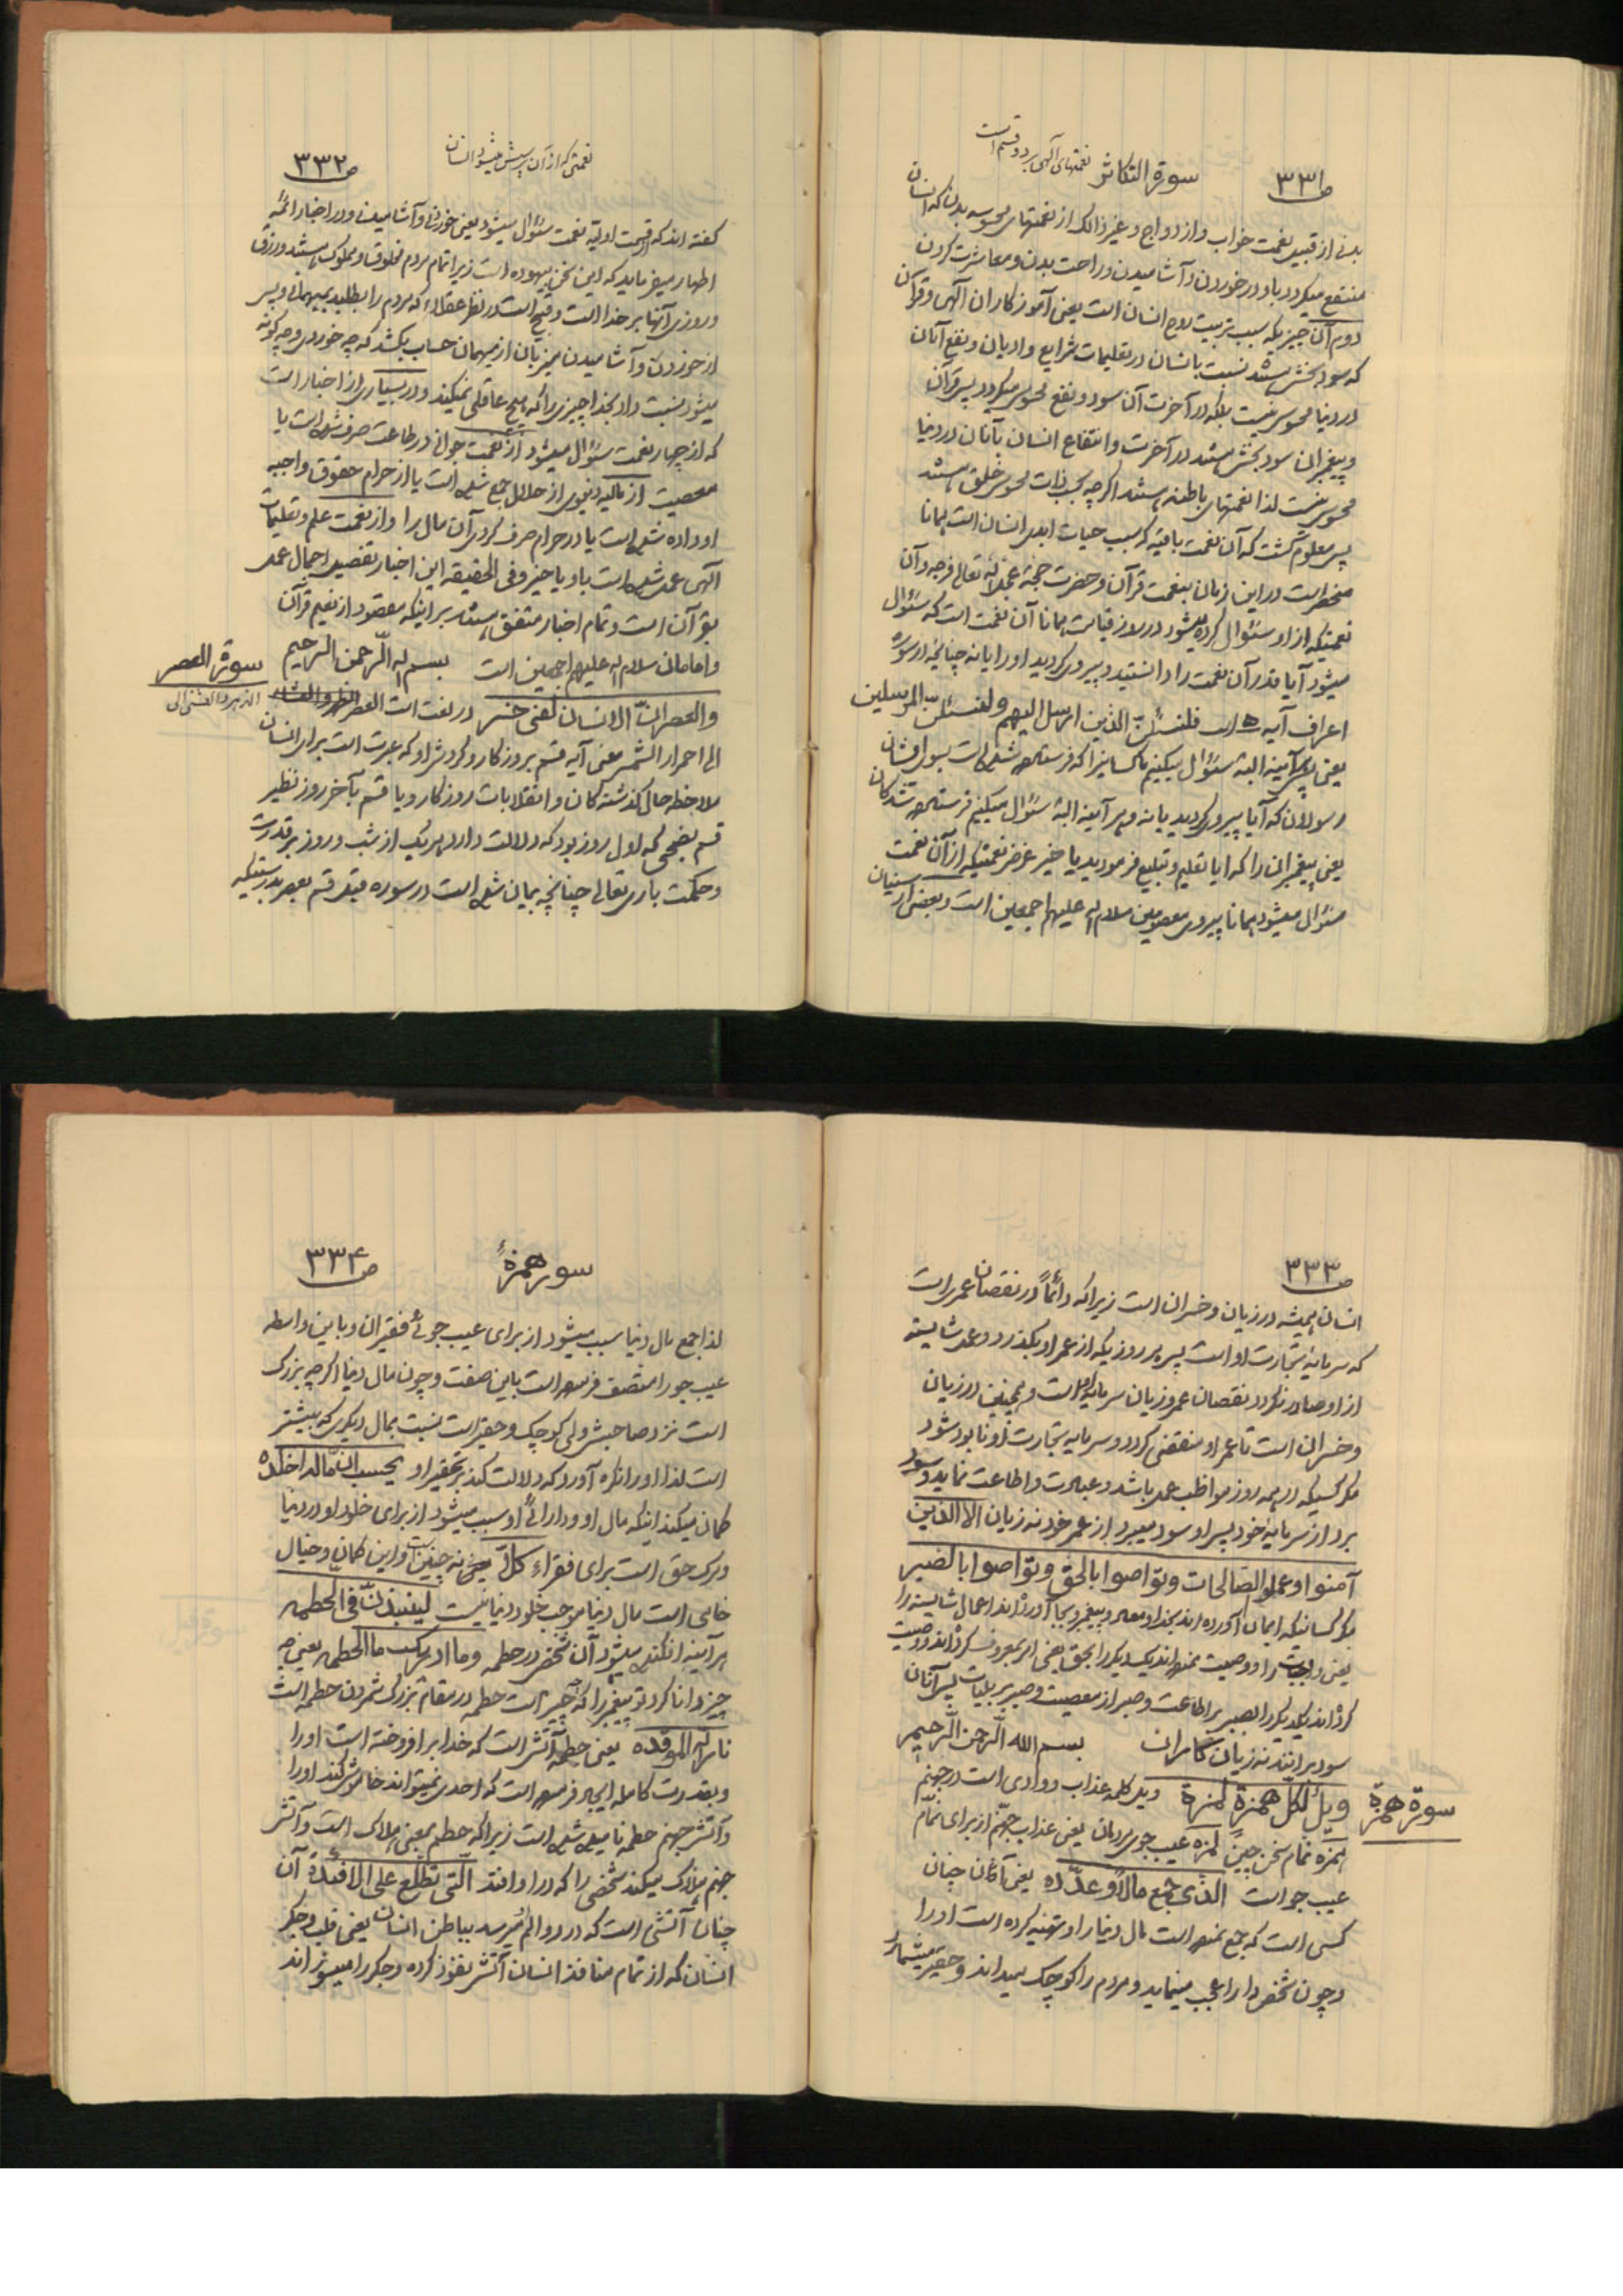 ص ۳۳۱
سورة التکاثر
نعمتهای آلهی بر دو قسم است
بدنی از قبیل نعمت خواب و ازدواج و غیر ذالک از نعمتهای محسوسه بدن که انسان
منتفع میگردد باو در خوردن و آشامیدن و راحت بدن و معاشرت کردن
دوم آن چیزیکه سبب تربیت روح انسان است یعنی آموزکاران آلهی و قرآن
که سود بخش هستند نسبت بانسان در تعلیمات شرایع و ادیان و نفع آنان
در دنیا محسوس نیست بلکه در آخرت آن سود و نفع محسوس میگردد پس قرآن
و پیغمبران سود بخش هستند در آخرت و انتفاع انسان بآنان در دنیا
محسوس نیست لذا نعمتهای باطنه هستند اگر چه بحسب ذات محسوس خلق هستند
پس معلوم گشت که آن نعمت باقیه که سبب حیات ابدی انسان است همانا
منحصر است در این زمان بنعمت قرآن و حضرت حجة عجل الله تعالی فرجه و آن
نعمتیکه از او سئوال کرده میشود در روز قیامت همانا آن نعمت است که سئوال
میشود آیا قدر آن نعمت را دانستید و پیروی کردید او را یا نه چنانچه در سوره
اعراف آیه ۵ است فلنسئلن الذین ارسل الیهم و لنسئلن المرسلین
یعنی پس هر آینه البته سئوال میکنیم ما کسانیرا که فرستاده شده است بسوی ایشان
رسولان که آیا پیروی کردید یا نه و هر آینه البته سئوال میکنیم فرستاده شدگان
یعنی پیغمبران را که آیا تعلیم و تبلیغ فرمودید یا خیر غرض نعمتیکه از آن نعمت
سئوال میشود همانا پیروی معصومین سلام الله علیهم اجمعین است و بعضی از سنیان
ص ۳۳۲
نعمتی که از آن پرسش میشود انسان
گفته اند که از قسمت اولیه نعمت سئوال میشود یعنی خوردن و آشامیدن و در اخبار ائمه
اظهار میفرماید که این سخن بیهوده است زیرا تمام مردم مخلوق و مملوک هستند و رزق
و روزی آنها بر خدا است و قبیح است در نظر عقلاء که مردم را بطلبید بمیهمانی و پس
از خوردن و آشامیدن میزبان از میهمان حساب بکشد که چه خوردی و چه گونه
میشود نسبت داد بخدا چیزی را که هیچ عاقلی نمیکند و در بسیاری از اخبار است
که از چهار نعمت سئوال میشود از نعمت جوانی در طاعت صرف شده است یا
معصیت از مالیه دنیوی از حلال جمع شده است یا از حرام حقوق واجبه
او داده شده است یا در حرام صرف کردی آن مال را و از نعمت علم و تعلیمات
آلهی عمل شده است باو یا خیر و فی الحقیقه این اخبار تفصیل اجمال عمل
بقرآن است و تمام اخبار متفق هستند بر اینکه مقصود از نعیم قرآن
و امامان سلام الله علیهم اجمعین است بسم الله الرحمن الرحیم
سورة العصر
والعصر ان الانسان لفی خسر در لغت است العصر
الدهر والعشی الی
الی احمرار الشمس معنی آیه قسم بروزکار و گردش او که عبرت است برای انسان
ملاحظه حال گذشته کان و انقلابات روزکار و یا قسم بآخر روز نظیر
قسم بضحی که اول روز بود که دلالت دارد هر یک از شب و روز بر قدرت
و حکمت باری تعالی چنانچه بیان شده است در سوره قبل قسم بعصر بدرستیکه
ص ۳۳۳
انسان همیشه در زیان و خسران است زیرا که دائماً در نقصان عمر است
که سرمایهٔ تجارت او است پس هر روزیکه از عمر او بگذرد و عمل شایسته
از او صادر نگردد نقصان عمر و زیان سرمایه او است و همچنین در زیان
و خسران است تا عمر او منقضی گردد و سرمایه تجارت او نابود شود
مگر کسیکه در همه روز مواظب عمل باشد و عبادت و اطاعت نماید و سود
برد از سرمایهٔ خود پس او سود میبرد از عمر خود نه زیان الا الذین
آمنوا و عملوا الصالحات و تواصوا بالحق و تواصوا بالصبر
مگر کسانیکه ایمان آورده اند بخدا و معاد و پیغمبر و بجا آورده اند اعمال شایسته را
یعنی واجبات را و وصیت نموده اند یکدیگر را بحق یعنی امر بمعروف کرده اند و وصیت
کرده اند یکدیگر را بصبر بر اطاعت و صبر از معصیت و صبر بر بلیات پس آنان
سود برانند نه زیان کاران بسم الله الرحمن الرحیم
سورة همزة
ویل لکل همزة لمزة ویل کلمه عذاب و وادی است در جهنم
همزه نمّام سخن چین لمزه عیب جوی مردمان یعنی عذاب جهنم از برای نمّام
عیب جو است الذی جمع مالاً و عدّده یعنی آنان چنان
کسی است که جمع نموده است مال دنیا را و تهیه کرده است او را
و چون شخص دارا عجب مینماید و مردم را کوچک میداند و حقیر میشمارد
ص ۳۳۴
سوره همزة
لذا جمع مال دنیا سبب میشود از برای عیب جوئی فقیران و باین واسطه
عیب جو را متصف فرموده است باین صفت و چون مال دنیا اگر چه بزرگ
است نزد صاحبش ولی کوچک و حقیر است نسبت بمال دیگری که بیشتر
است لذا او را نکره آورد که دلالت کند بر تحقیر او یحسب ان ماله اخلده
گمان میکند اینکه مال او و دارائی او سبب میشود از برای خلود او در دنیا
و مرگ حق است برای فقراء کلّا یعنی نه چنین است و این گمان و خیال
خامی است مال دنیا موجب خلود دنیا نیست لینبذن فی الحطمة
هر آینه انکنده میشود آن شخص در حطمه و ما ادریک ما الحطمه یعنی چه
چیز دانا کرد تو پیغمبر را که چه چیز است حطمه در مقام بزرگ شمردن حطمه است
نار الله الموقدة یعنی حطمه آتش است که خدا بر افروخته است او را
و بقدرت کامله ایجاد فرموده است که احدی نمیتواند خاموش کند او را
و آتش جهنم حطمه نامیده شده است زیرا که حطم بمعنی هلاک است و آتش
جهنم هلاک میکند شخصی را که در او افتد التی تطّلع علی الافئدة آن
چنان آتشی است که درد و الم میرسد بباطن انسان یعنی قلب و جگر
انسان که از تمام منافذ انسان آتش نفوذ کرده و جگر را میسوزاند